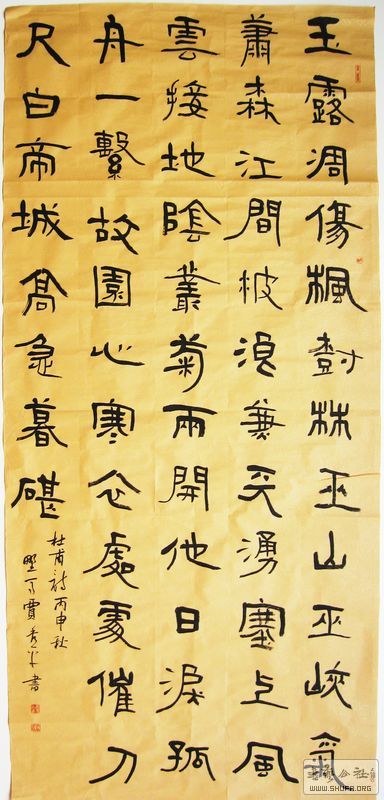 玉露凋傷楓樹林巫山巫峽氣
蕭森江間波浪兼天湧塞上風
雲接地陰叢菊兩開他日淚孤
舟一繫故園心寒衣處處催刀
尺白帝城高急暮碪
杜甫詩丙申秋
賈書
公社
WWW.SHUFA.ORG